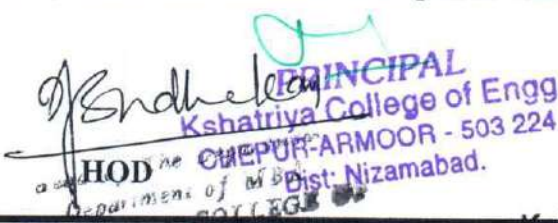 PRINCIPAL
Kshatriya College of Engg
CHEPUR-ARMOOR - 503 224
HOD
Dist: Nizamabad.
Department of MBA
COLLEGE